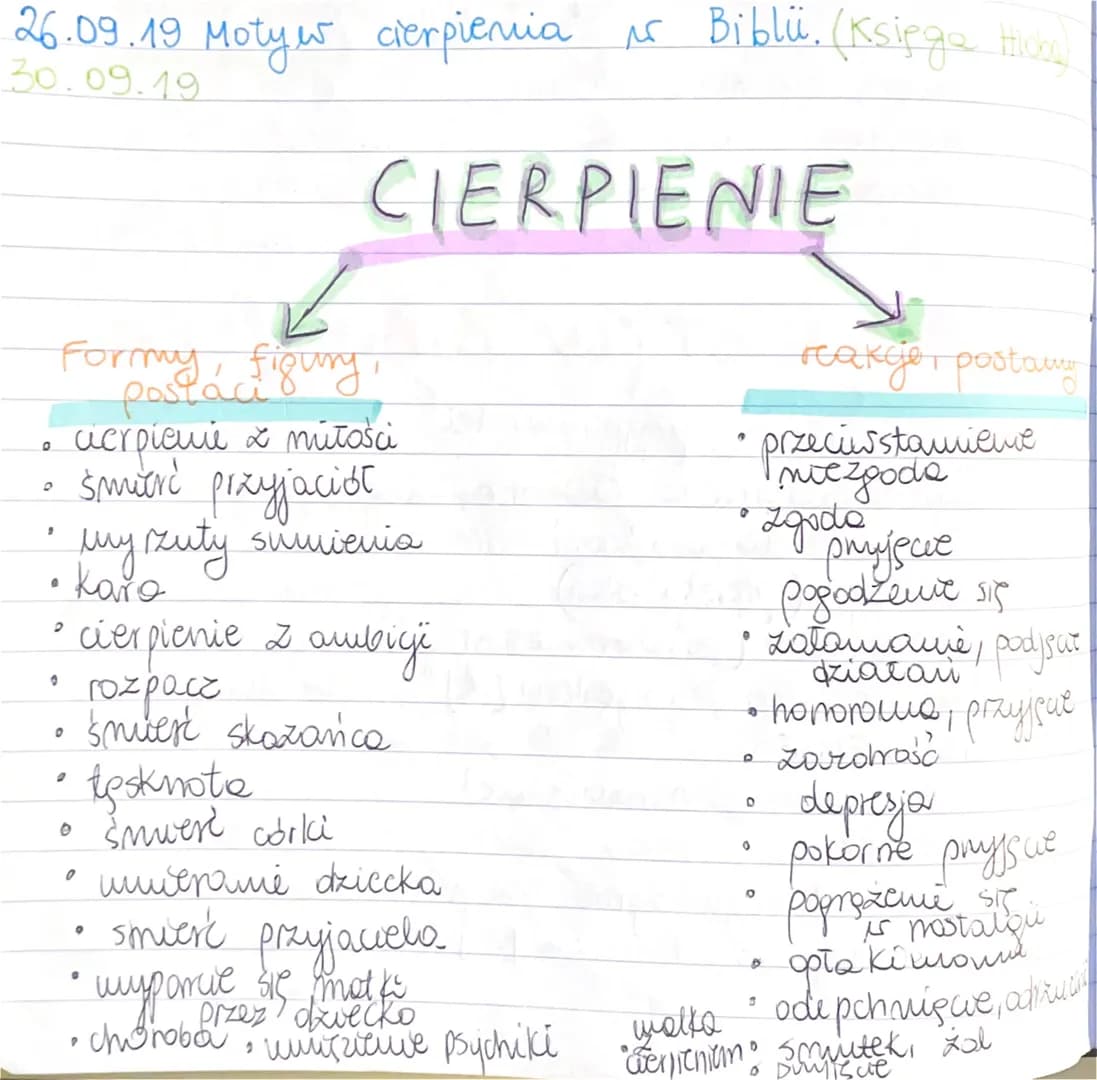 26.09.19 Motyw cierpienia w Biblii. (Księga Hioba)
30.09.19
CIERPIENIE
Formy, figury,
postaci
• cierpienie z miłości
• śmierć przyjaciół
• wyrzuty sumienia
• kara
• cierpienie z ambicji
• rozpacz
• śmierć skazańca
• tęsknota
• śmierć córki
• umieranie dziecka
• smierć przyjaciela
• wyparcie się matki
przez dziecko
• choroba • zniszczenie psychiki
reakcje, postawy
• przeciwstawienie
niezgoda
• zgoda
przyjęcie
pogodzenie się
• załamanie, podjęcie
działań
• honorowa, przyjęcie
• zazdrość
• depresja
• pokorne przyjęcie
• pogrążenie się
w nostalgii
• opłakiwanie
• odepchnięcie, odrzucenie
• walka
z
cierpieniem
• smutek, żal
• przyjęcie